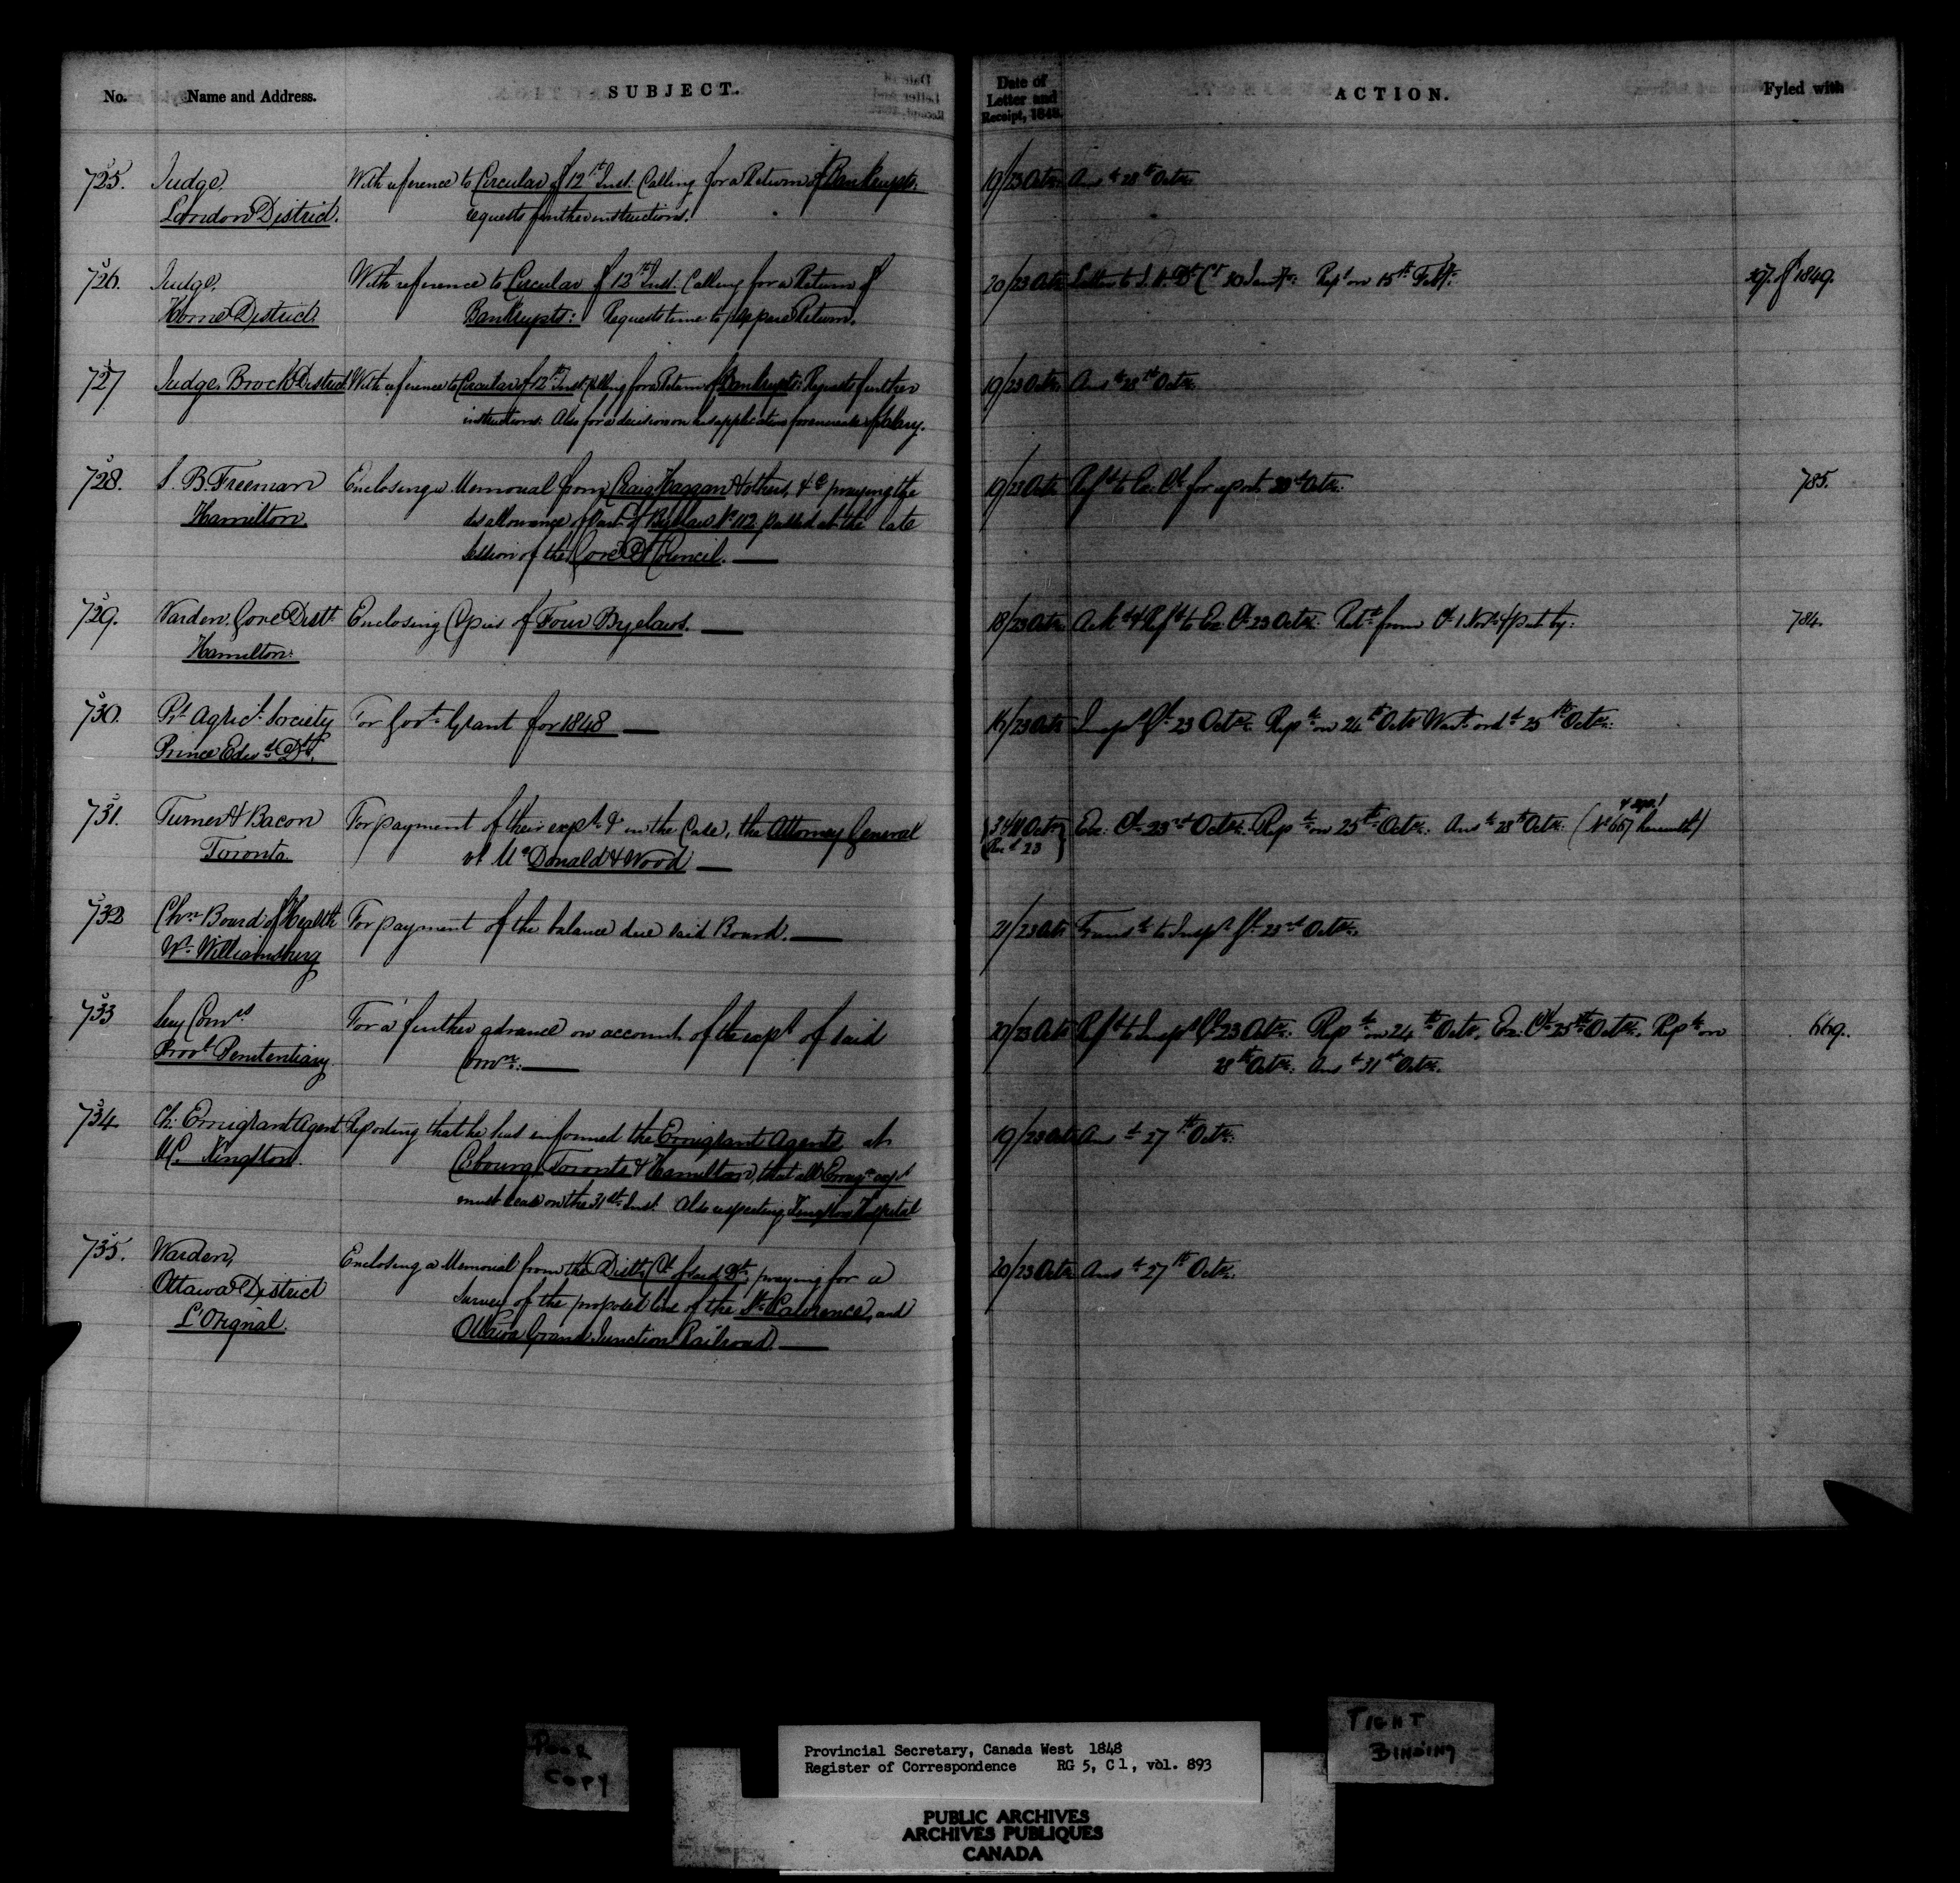 No. Name and Address. SUBJECT. Date of Letter and Receipt, 1848. ACTION. Fyled with
725. Judge, With reference to Circular of 12th Inst. Calling for a Return of Bankrupts, 19/23 Octr. Ansd 28th Octr.
London District. requests further instructions.
726. Judge, With reference to Circular of 12th Inst. Calling for a Return of 20/23 Octr. Letter to 30 Jany. Repd on 15th Feby. 297 of 1849.
Home District. Bankrupts: Requests time to prepare Return.
727 Judge, Brock District With reference to Circular of 12th Inst. Calling for a Return of Bankrupts: Requests further 19/23 Octr. Ansd 28th Octr.
instructions. Also for a decision on his application for increase of Salary.
728. S. B. Freeman Enclosing a Memorial from Craig Haggan & others, &c praying the 19/23 Octr. Refd to Ex. Cl. for report 23d Octr. 785.
Hamilton disallowance of Part of Bylaw No 112 passed at the late
Session of the Gore Dt Council.
729. Warden, Gore Distt. Enclosing Copies of Four Byelaws. 18/23 Octr. Ackd & Refd to Ex. Cl. 23 Octr. Retd from Cl. 1 Novr & put by. 784.
Hamilton.
730. Pt Agricl. Society For Govt. Grant for 1848 16/23 Octr. Inspr Gl. 23 Octr. Repd on 24th Octr Wart. ord. 25th Octr.
Prince Edwd Dt.
731. Turner & Bacon For payment of their expt. &c in the Case, the Attorney General 3 & 11 Octr Ex. Cl. 23rd Octr. Repd on 25th Octr. Ansd 28th Octr. (No 667 herewith)
Toronto. vs McDonald & Wood Recd 23
732 Chn Board of Health For payment of the balance due said Board. 21/23 Octr Transd to Inspr Gl. 23rd Octr.
Wt. Williamsburg
733 Secy Comrs For a further advance on account of the exps of said 20/23 Octr Refd to Inspr Gl 23 Octr. Repd on 24th Octr. Ex. Cl. 25th Octr. Repd on 669.
Provl Penitentiary Comn. 28th Octr. Ansd 31st Octr.
734 Ch. Emigrant Agent Reporting that he has informed the Emigrant Agents at 19/23 Octr Ansd 27th Octr.
UC. Kingston. Cobourg, Toronto & Hamilton, that all Emigrn exps
must cease on the 31st Inst. Also respecting Kingston Hospital
735. Warden, Enclosing a Memorial from the Distt. Cl of said Dt. praying for a 20/23 Octr Ansd 27th Octr.
Ottawa District Survey of the proposed line of the St. Lawrence, and
L'Orignal. Ottawa Grand Junction Railroad.
POOR COPY
TIGHT BINDING
Provincial Secretary, Canada West 1848
Register of Correspondence RG 5, C 1, vol. 893
PUBLIC ARCHIVES
ARCHIVES PUBLIQUES
CANADA